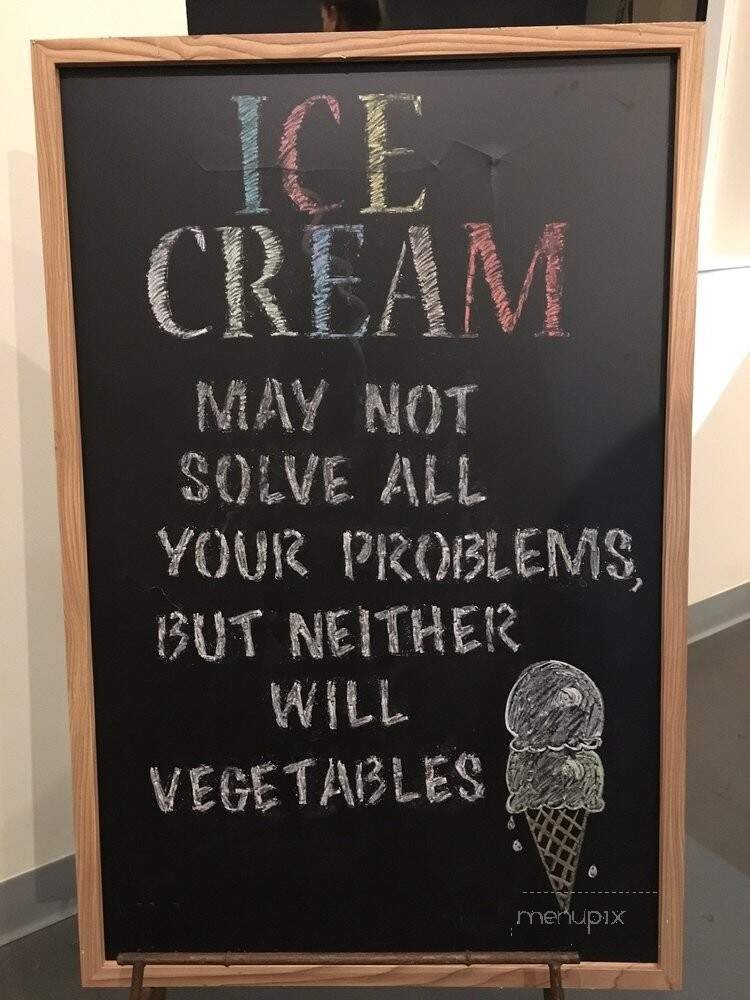 ICE
CREAM
MAY NOT
SOLVE ALL
YOUR PROBLEMS,
BUT NEITHER
WILL
VEGETABLES
menupix